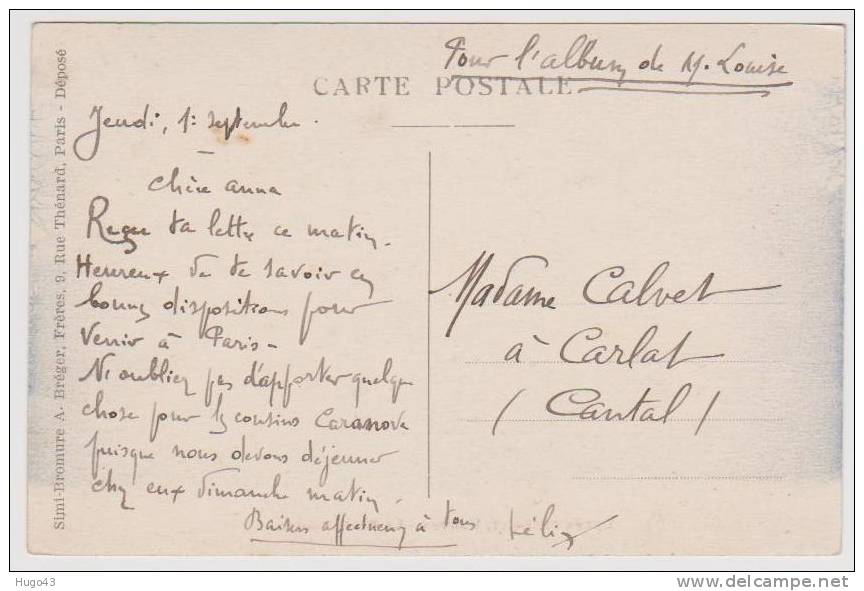 Pour l'album de M. Louise
CARTE POSTALE
Jeudi, 1: septembre.
Chère anna
Reçu ta lettre ce matin.
Heureux de te savoir en
bonnes dispositions pour
venir à Paris -
N'oubliez pas d'apporter quelque
chose pour les cousins Casanova
puisque nous devons déjeuner
chez eux dimanche matin.
Baisers affectueux à tous Félix
Madame Calvet
à Carlat
(Cantal)
Simi-Bromure A. Bréger, Frères, 9, Rue Thénard, Paris - Déposé
Hugo43
delcampe.net